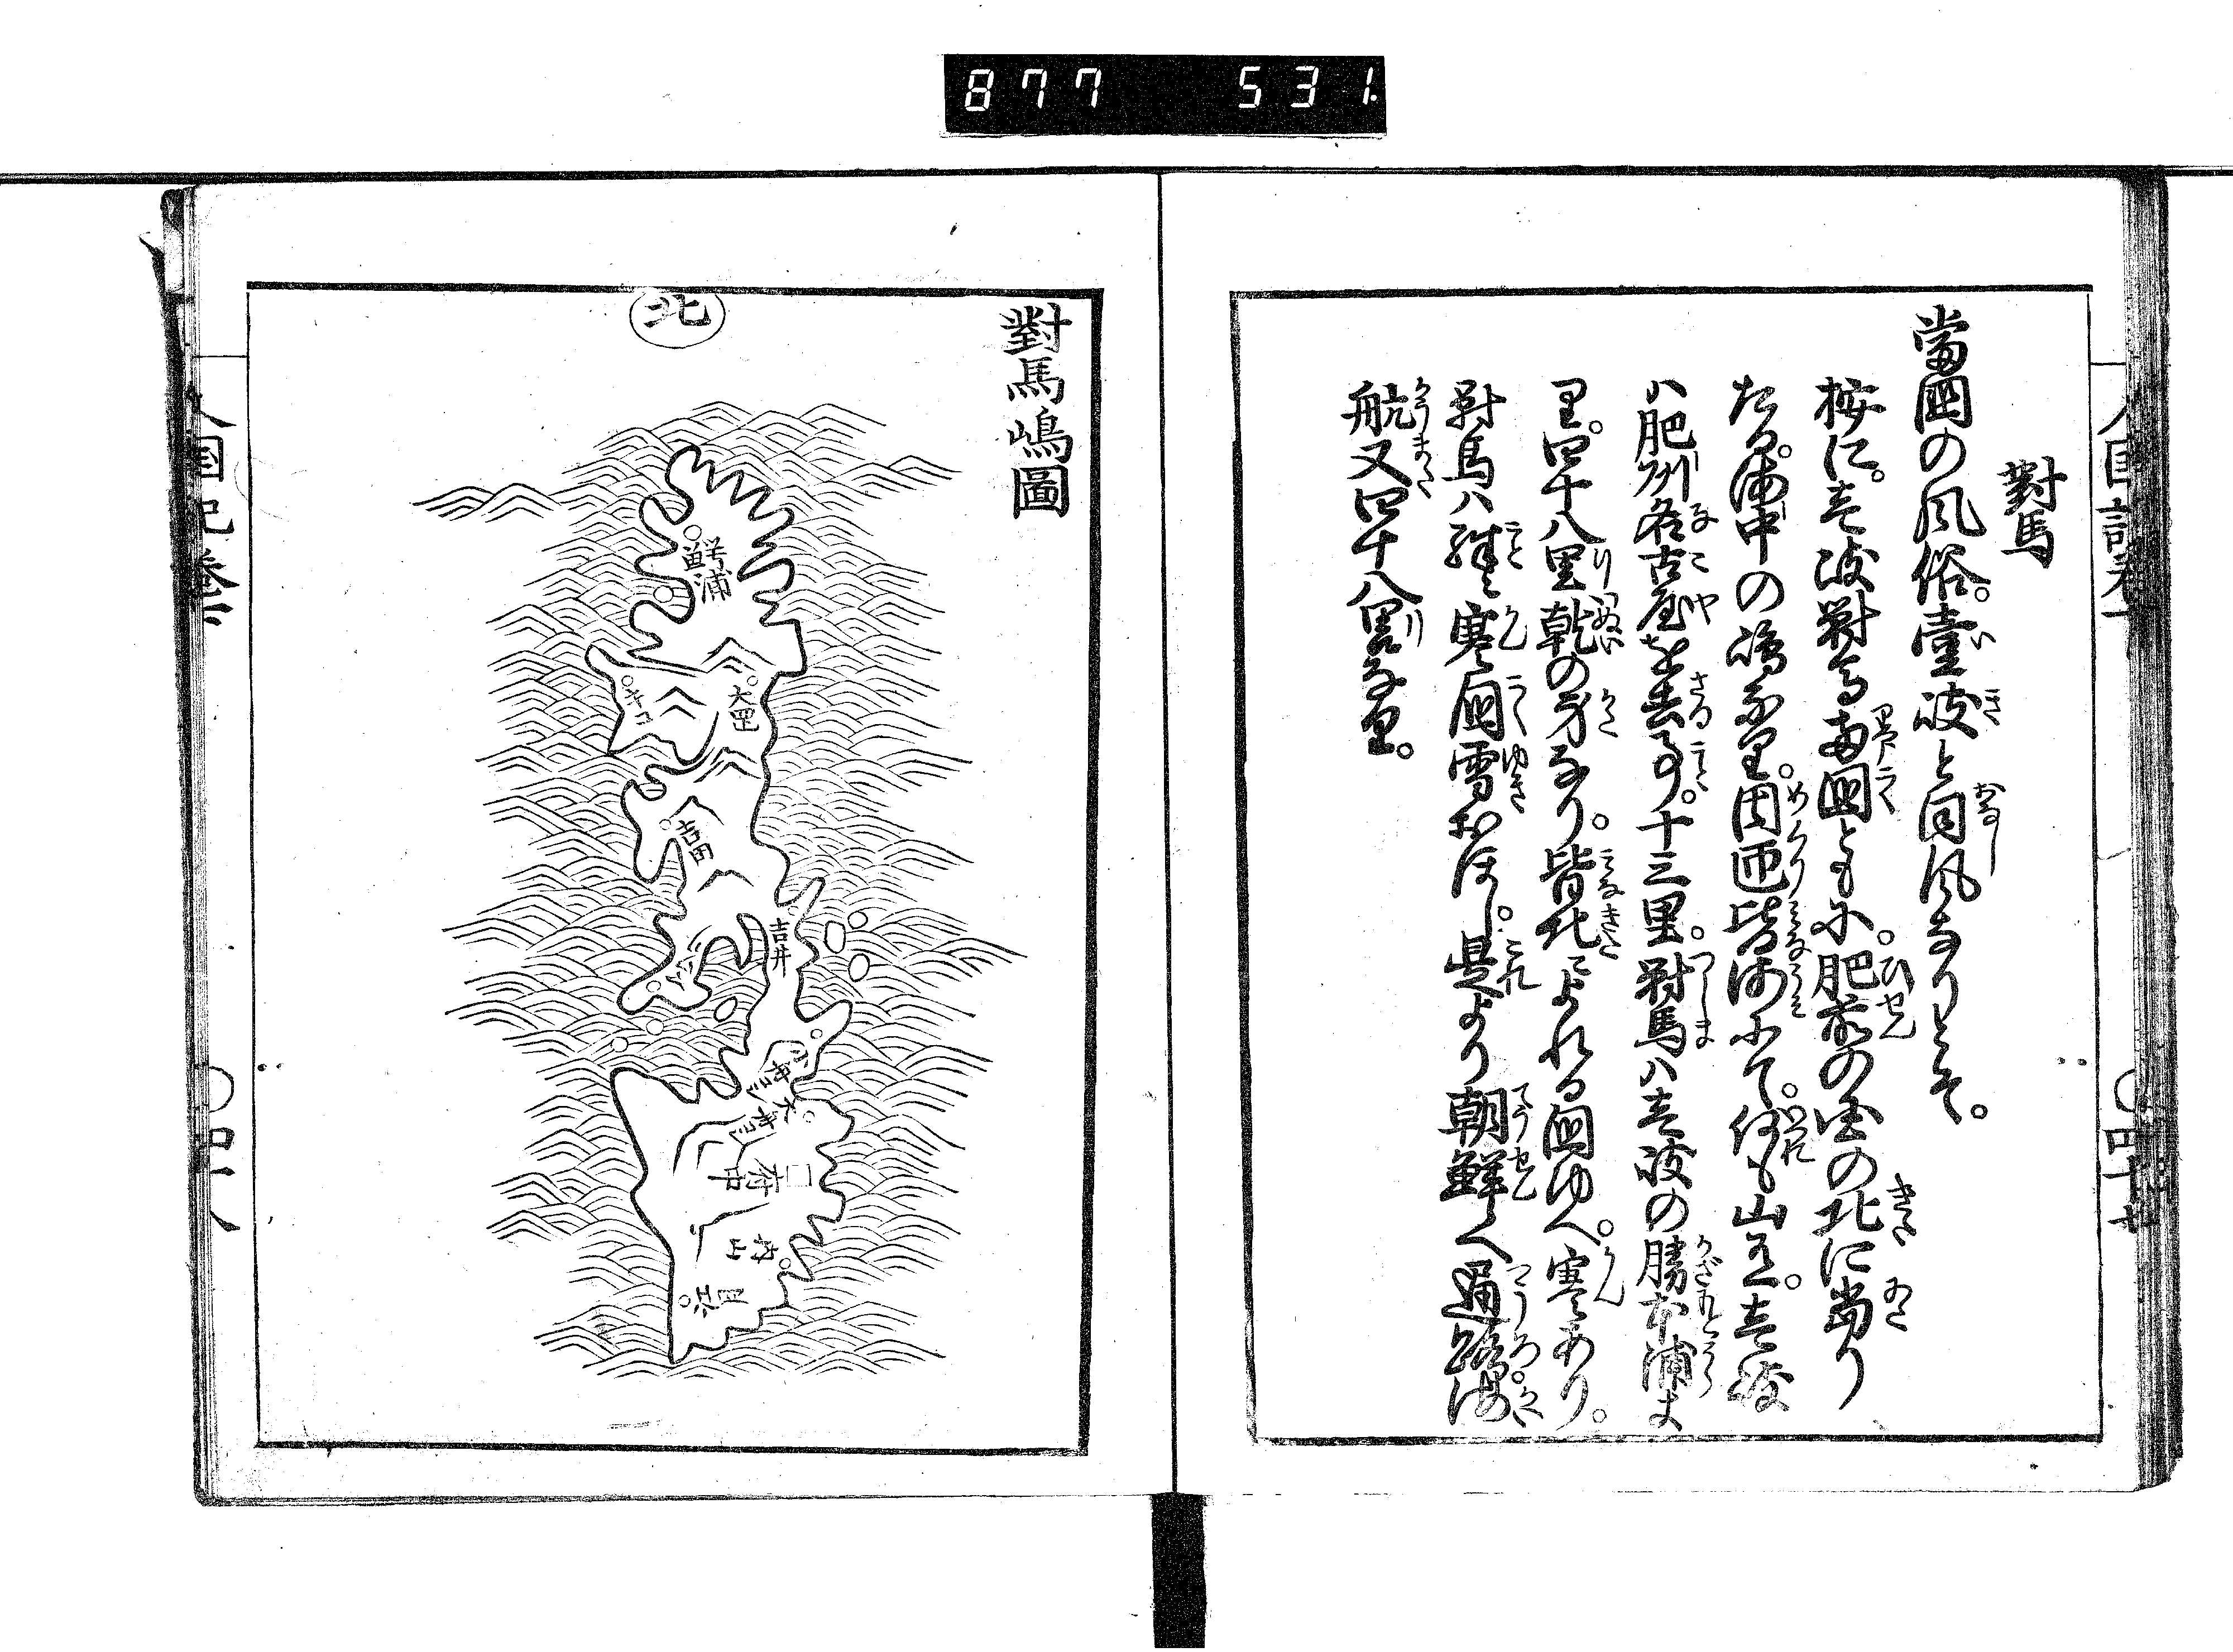 877 531
對馬
當國の風俗。壹岐と同風なりとぞ。
按に。壱岐對馬両國ともに。肥前の国の北に当り
たる。海中の嶋なり。周匝皆海にて。何も山五。壱岐
ハ肥州名古屋を去る事。十三里。對馬ハ壱岐の勝本浦よ
り。四十八里乾の方なり。皆北によれる国ゆへ。寒あり。
對馬ハ殊に寒国雪おほし。是より朝鮮へ通路海
航又四十八里なり。
對馬嶋圖
北
鮮浦
大罡
キコ
吉田
吉井
府中
内山